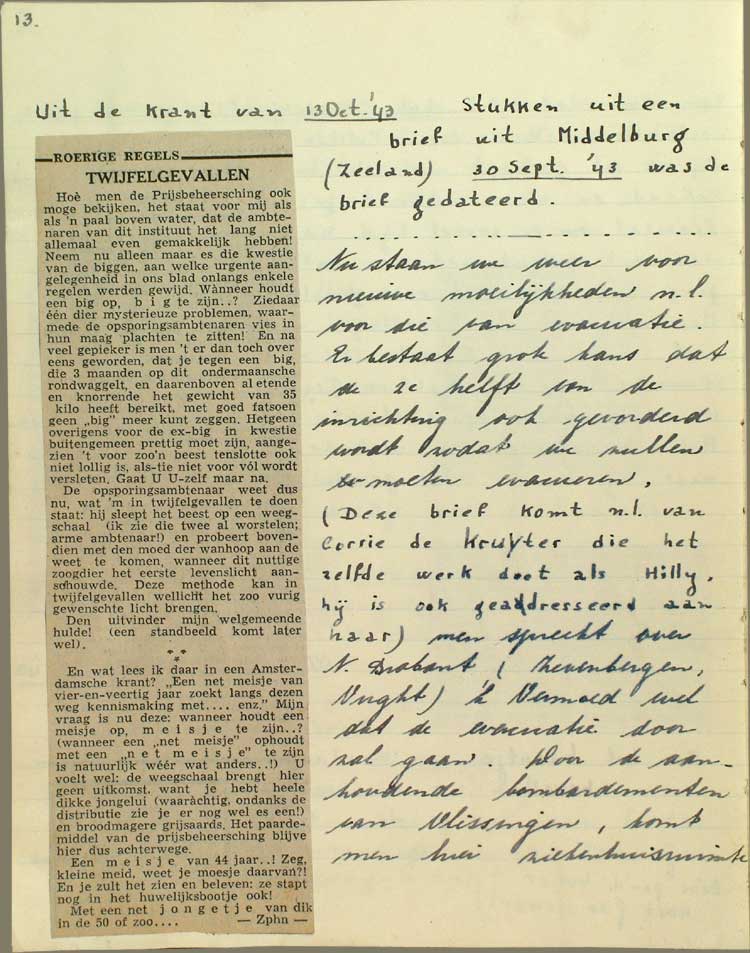 13.
Uit de krant van 13 Oct. '43
ROERIGE REGELS
TWIJFELGEVALLEN
Hoè men de Prijsbeheersching ook
moge bekijken, het staat voor mij als
als 'n paal boven water, dat de ambte-
naren van dit instituut het lang niet
allemaal even gemakkelijk hebben!
Neem nu alleen maar es die kwestie
van de biggen, aan welke urgente aan-
gelegenheid in ons blad onlangs enkele
regelen werden gewijd. Wànneer houdt
een big op, b i g te zijn..? Ziedaar
één dier mysterieuze problemen, waar-
mede de opsporingsambtenaren vies in
hun maag plachten te zitten! En na
veel gepieker is men 't er dan toch over
eens geworden, dat je tegen een big,
die 3 maanden op dit ondermaansche
rondwaggelt, en daarenboven al etende
en knorrende het gewicht van 35
kilo heeft bereikt, met goed fatsoen
geen „big" meer kunt zeggen. Hetgeen
overigens voor de ex-big in kwestie
buitengemeen prettig moet zijn, aange-
zien 't voor zoo'n beest tenslotte ook
niet lollig is, als-tie niet voor vól wordt
versleten. Gaat U U-zelf maar na.
De opsporingsambtenaar weet dus
nu, wat 'm in twijfelgevallen te doen
staat: hij sleept het beest op een weeg-
schaal (ik zie die twee al worstelen;
arme ambtenaar!) en probeert boven-
dien met den moed der wanhoop aan de
weet te komen, wanneer dit nuttige
zoogdier het eerste levenslicht aan-
schouwde. Deze methode kan in
twijfelgevallen wellicht het zoo vurig
gewenschte licht brengen.
Den uitvinder mijn welgemeende
hulde! (een standbeeld komt later
wel).
* * *
En wat lees ik daar in een Amster-
damsche krant? „Een net meisje van
vier-en-veertig jaar zoekt langs dezen
weg kennismaking met.... enz." Mijn
vraag is nu deze: wanneer houdt een
meisje op, m e i s j e te zijn..?
(wanneer een „net meisje" ophoudt
met een „n e t m e i s j e" te zijn
is natuurlijk wéér wat anders..!) U
voelt wel: de weegschaal brengt hier
geen uitkomst, want je hebt heele
dikke jongelui (waaràchtig, ondanks de
distributie zie je er nog wel es een!)
en broodmagere grijsaards. Het paarde-
middel van de prijsbeheersching blijve
hier dus achterwege.
Een m e i s j e van 44 jaar..! Zeg,
kleine meid, weet je moesje daarvan?!
En je zult het zien en beleven: ze stapt
nog in het huwelijksbootje ook!
Met een net j o n g e t j e van dik
in de 50 of zoo.... — Zphn —
Stukken uit een
brief uit Middelburg
(Zeeland) 30 Sept. '43 was de
brief gedateerd.
Nu staan we weer voor
nieuwe moeilijkheden n.l.
voor die van evacuatie.
Er bestaat grote kans dat
de 2e helft van de
inrichting ook gevorderd
wordt zodat we zullen
moeten evacueren.
(Deze brief komt n.l. van
Corrie de Kruyter die het
zelfde werk doet als Hilly,
hij is ook geaddresseerd aan
haar) men spreekt over
N. Brabant (Zevenbergen,
Vught) 'k Vermoed wel
dat de evacuatie door
zal gaan. Door de aan-
houdende bombardementen
van Vlissingen, komt
men hier ziekenhuisruimte